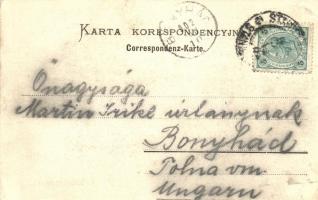 KARTA KORESPONDENCYJN
Correspondenz-Karte.
Önagysága
Martin Irike úrlánynak
Bonyhád
Tolna vm.
Ungarn